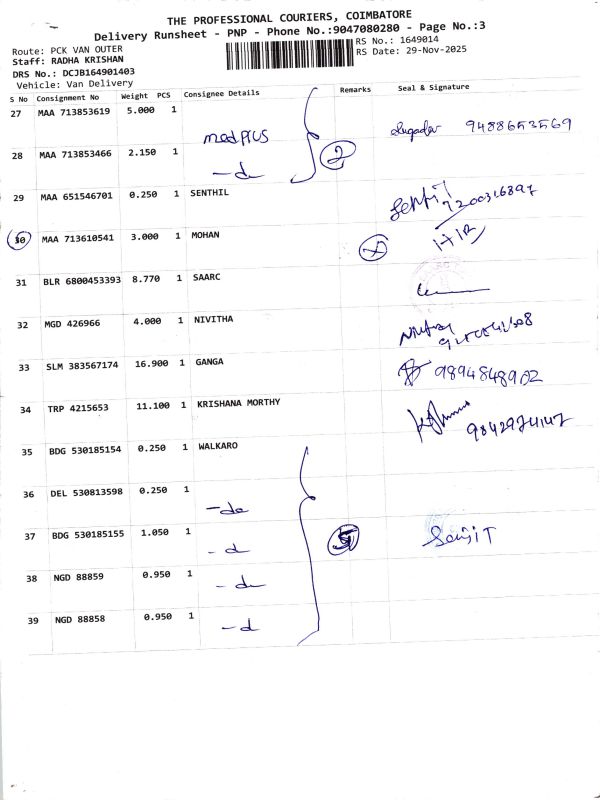 THE PROFESSIONAL COURIERS, COIMBATORE
Delivery Runsheet - PNP - Phone No.:9047080280 - Page No.:3
Route: PCK VAN OUTER
RS No.: 1649014
Staff: RADHA KRISHAN
RS Date: 29-Nov-2025
DRS No.: DCJB164901403
Vehicle: Van Delivery
S No Consignment No Weight PCS Consignee Details Remarks Seal & Signature
27 MAA 713853619 5.000 1 medplus 9488653569
28 MAA 713853466 2.150 1 -do 2
29 MAA 651546701 0.250 1 SENTHIL
30 MAA 713610541 3.000 1 MOHAN
31 BLR 6800453393 8.770 1 SAARC
32 MGD 426966 4.000 1 NIVITHA
33 SLM 383567174 16.900 1 GANGA 9894848902
34 TRP 4215653 11.100 1 KRISHANA MORTHY 9842974147
35 BDG 530185154 0.250 1 WALKARO
36 DEL 530813598 0.250 1 -do
37 BDG 530185155 1.050 1 -d 5
38 NGD 88859 0.950 1 -do
39 NGD 88858 0.950 1 -d